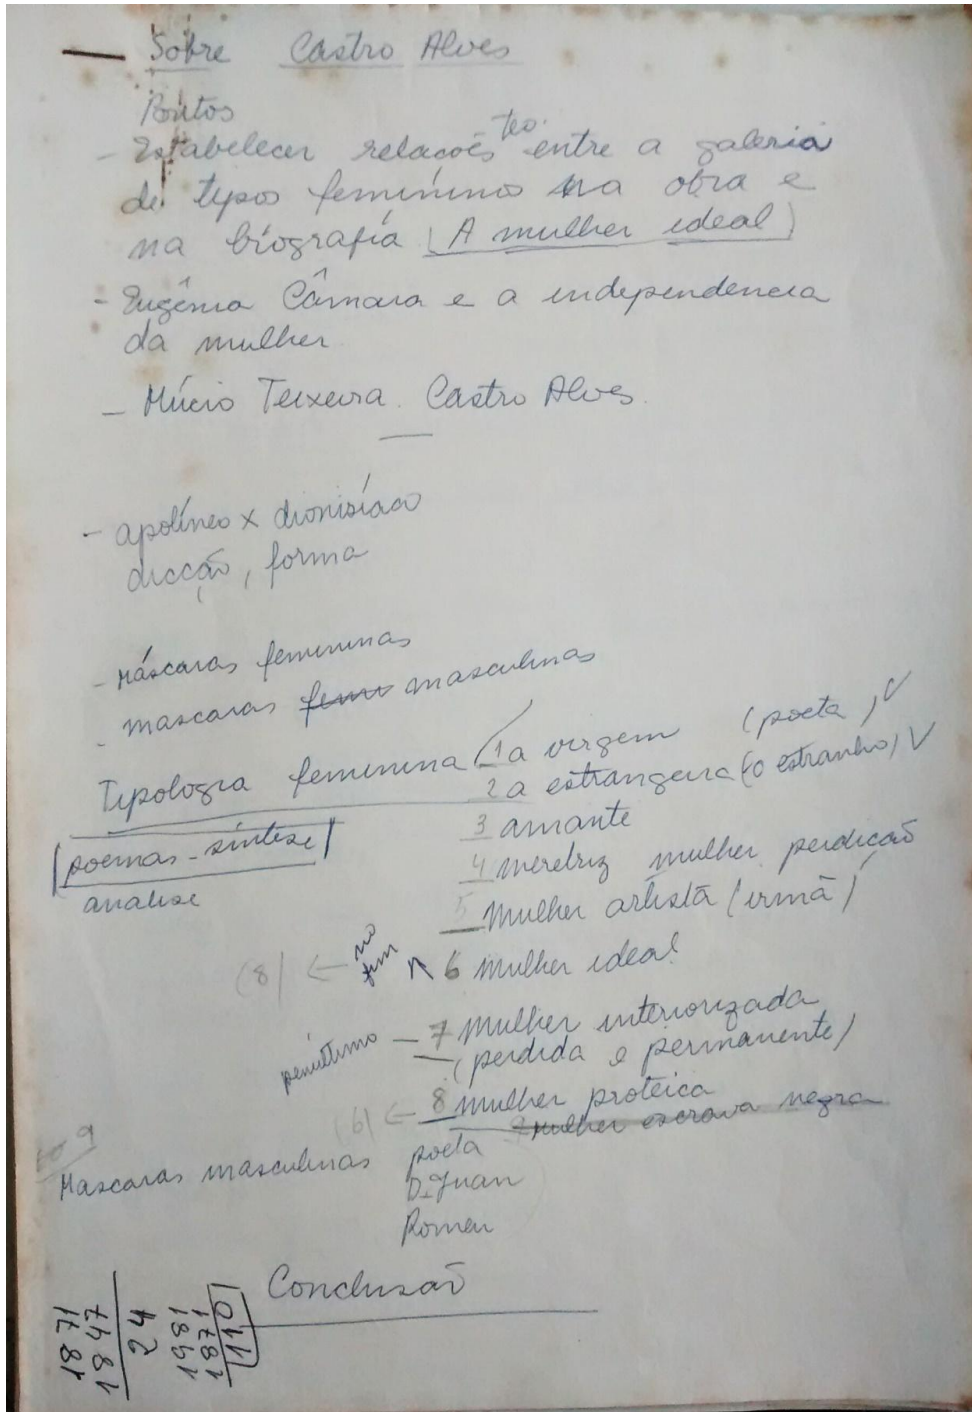 — Sobre Castro Alves
Pontos
- Estabelecer relações teo. entre a galeria
de tipos femininos na obra e
na biografia (A mulher ideal)
- Eugênia Câmara e a independencia
da mulher
- Múcio Teixeira. Castro Alves.
- apolíneo x dionisíaco
dicção, forma
- Máscaras femininas
- mascaras femi masculinas
Tipologia feminina
1 a virgem (poeta) ✓
2 a estrangeira (o estranho) ✓
3 amante
4 meretriz mulher perdição
5 Mulher artista (irmã)
6 Mulher ideal
(8) ← no fim
(poemas-síntese)
analise
penúltimo — 7 Mulher interiorizada
(perdida e permanente)
(6) ← 8 mulher protéica
9 Mulher escrava negra
9
Mascaras masculinas poeta
D. Juan
Romeu
Conclusão
1871
1847
24
1981
1871
110